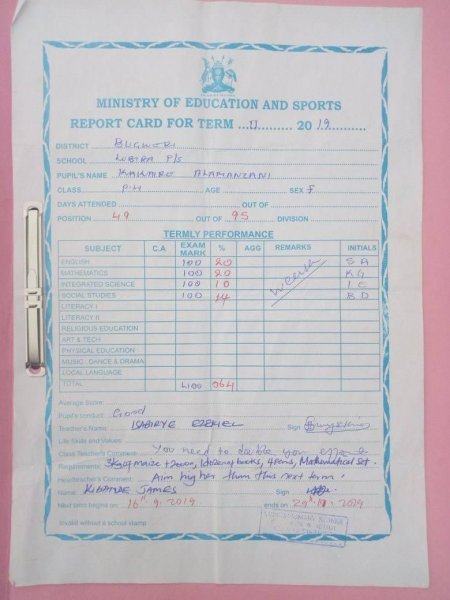 MINISTRY OF EDUCATION AND SPORTS
REPORT CARD FOR TERM II 2019
DISTRICT BUGWERI
SCHOOL LUBIRA P/S
PUPIL'S NAME KAKAIRO ALAMANZANI
CLASS P.4 AGE SEX F
DAYS ATTENDED OUT OF
POSITION 49 OUT OF 95 DIVISION
TERMLY PERFORMANCE
SUBJECT C.A EXAM MARK % AGG REMARKS INITIALS
ENGLISH 100 20 S A
MATHEMATICS 100 20 K G
INTEGRATED SCIENCE 100 10 I E
SOCIAL STUDIES 100 14 B D
weak
LITERACY I
LITERACY II
RELIGIOUS EDUCATION
ART & TECH
PHYSICAL EDUCATION
MUSIC, DANCE & DRAMA
LOCAL LANGUAGE
TOTAL 400 064
Average Score:
Pupil's conduct: Good
Teacher's Name: ISABIRYE EZEKIEL Sign
Life Skills and Values:
Class Teacher's Comment: You need to double your
Requirements: 3kg of maize + 2000=, 1dozen of books, 4pens, Mathematical set.
Headteacher's Comment: Aim higher than this next term!
Name: JAMES Sign
Next term begins on: 16th. 9. 2019 ends on 29th. 11. 2019
Invalid without a school stamp